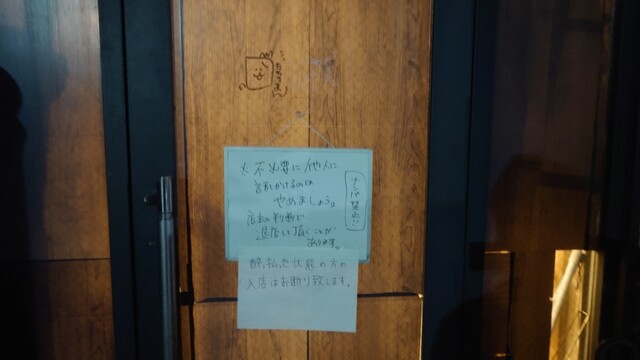 ※不必要に他人に
話しかけるのは
やめましょう。
店主の判断で
退店して頂くことが
あります。
ナンパ禁止!!
酔っ払った状態の方の
入店はお断り致します。